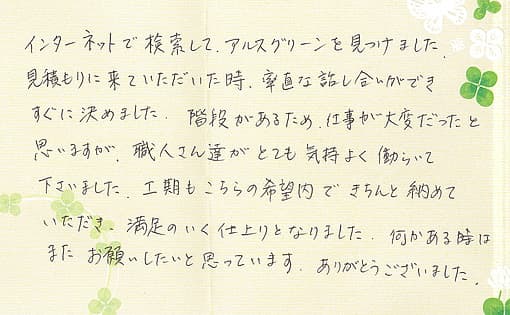 インターネットで検索して、アルスグリーンを見つけました。
見積もりに来ていただいた時、率直な話し合いができ
すぐに決めました。階段があるため、仕事が大変だったと
思いますが、職人さん達がとても気持よく働らいて
下さいました。工期もこちらの希望内できちんと納めて
いただき、満足のいく仕上りとなりました。何かある時は
また お願いしたいと思っています。ありがとうございました。